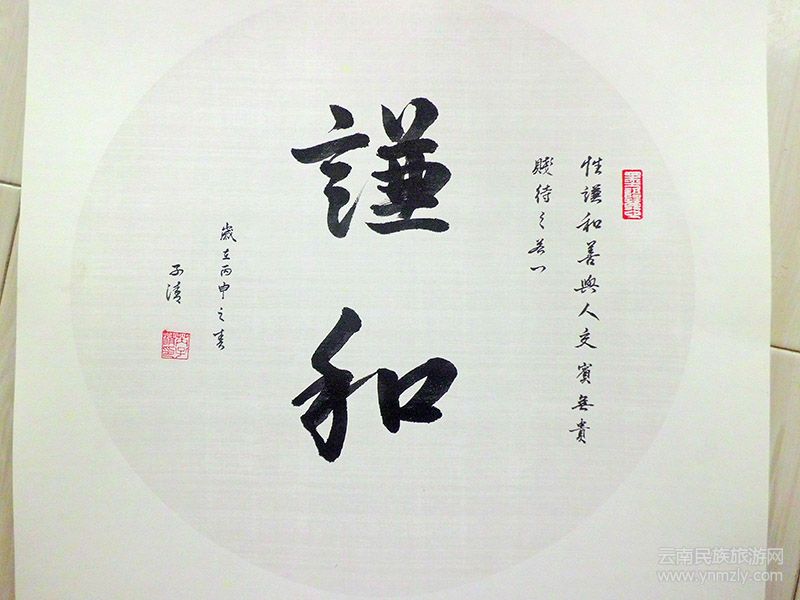 性謙和善與人交賓無貴
賤待之若一
謙
和
歲在丙申之春
子清
云南民族旅游网
www.ynmzly.com